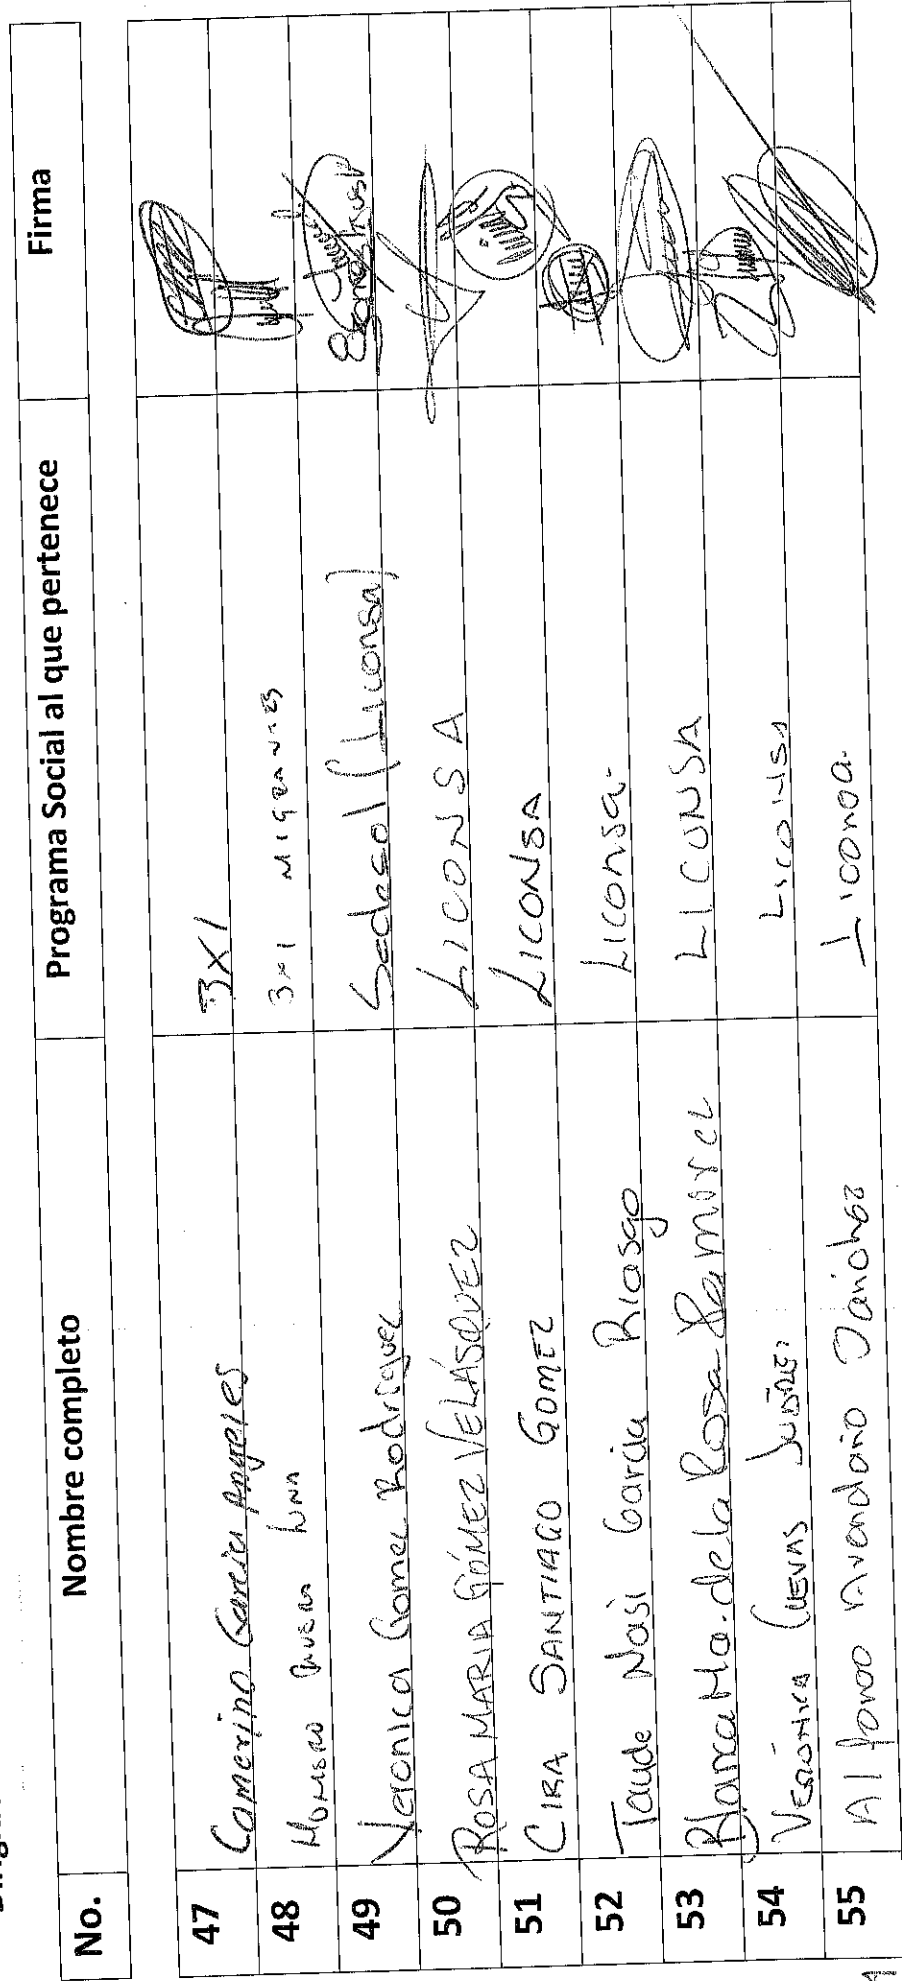 No. Nombre completo Programa Social al que pertenece Firma
47 Camerino Garcia Angeles 3x1
48 Homero Luna 3x1 MIGRANTES
49 Veronica Gomez Rodriguez Sedesol (Liconsa)
50 ROSA MARIA GÓMEZ VELÁSQUEZ LICONSA
51 CIRA SANTIAGO GOMEZ LICONSA
52 Nasi Garcia Riasgo Liconsa.
53 Blanca Ma. de la Rosa Ramirez LICONSA
54 VERÓNICA CUEVAS JUÁREZ LICONSA
55 Alfonso Avendaño Sánchez Liconsa.